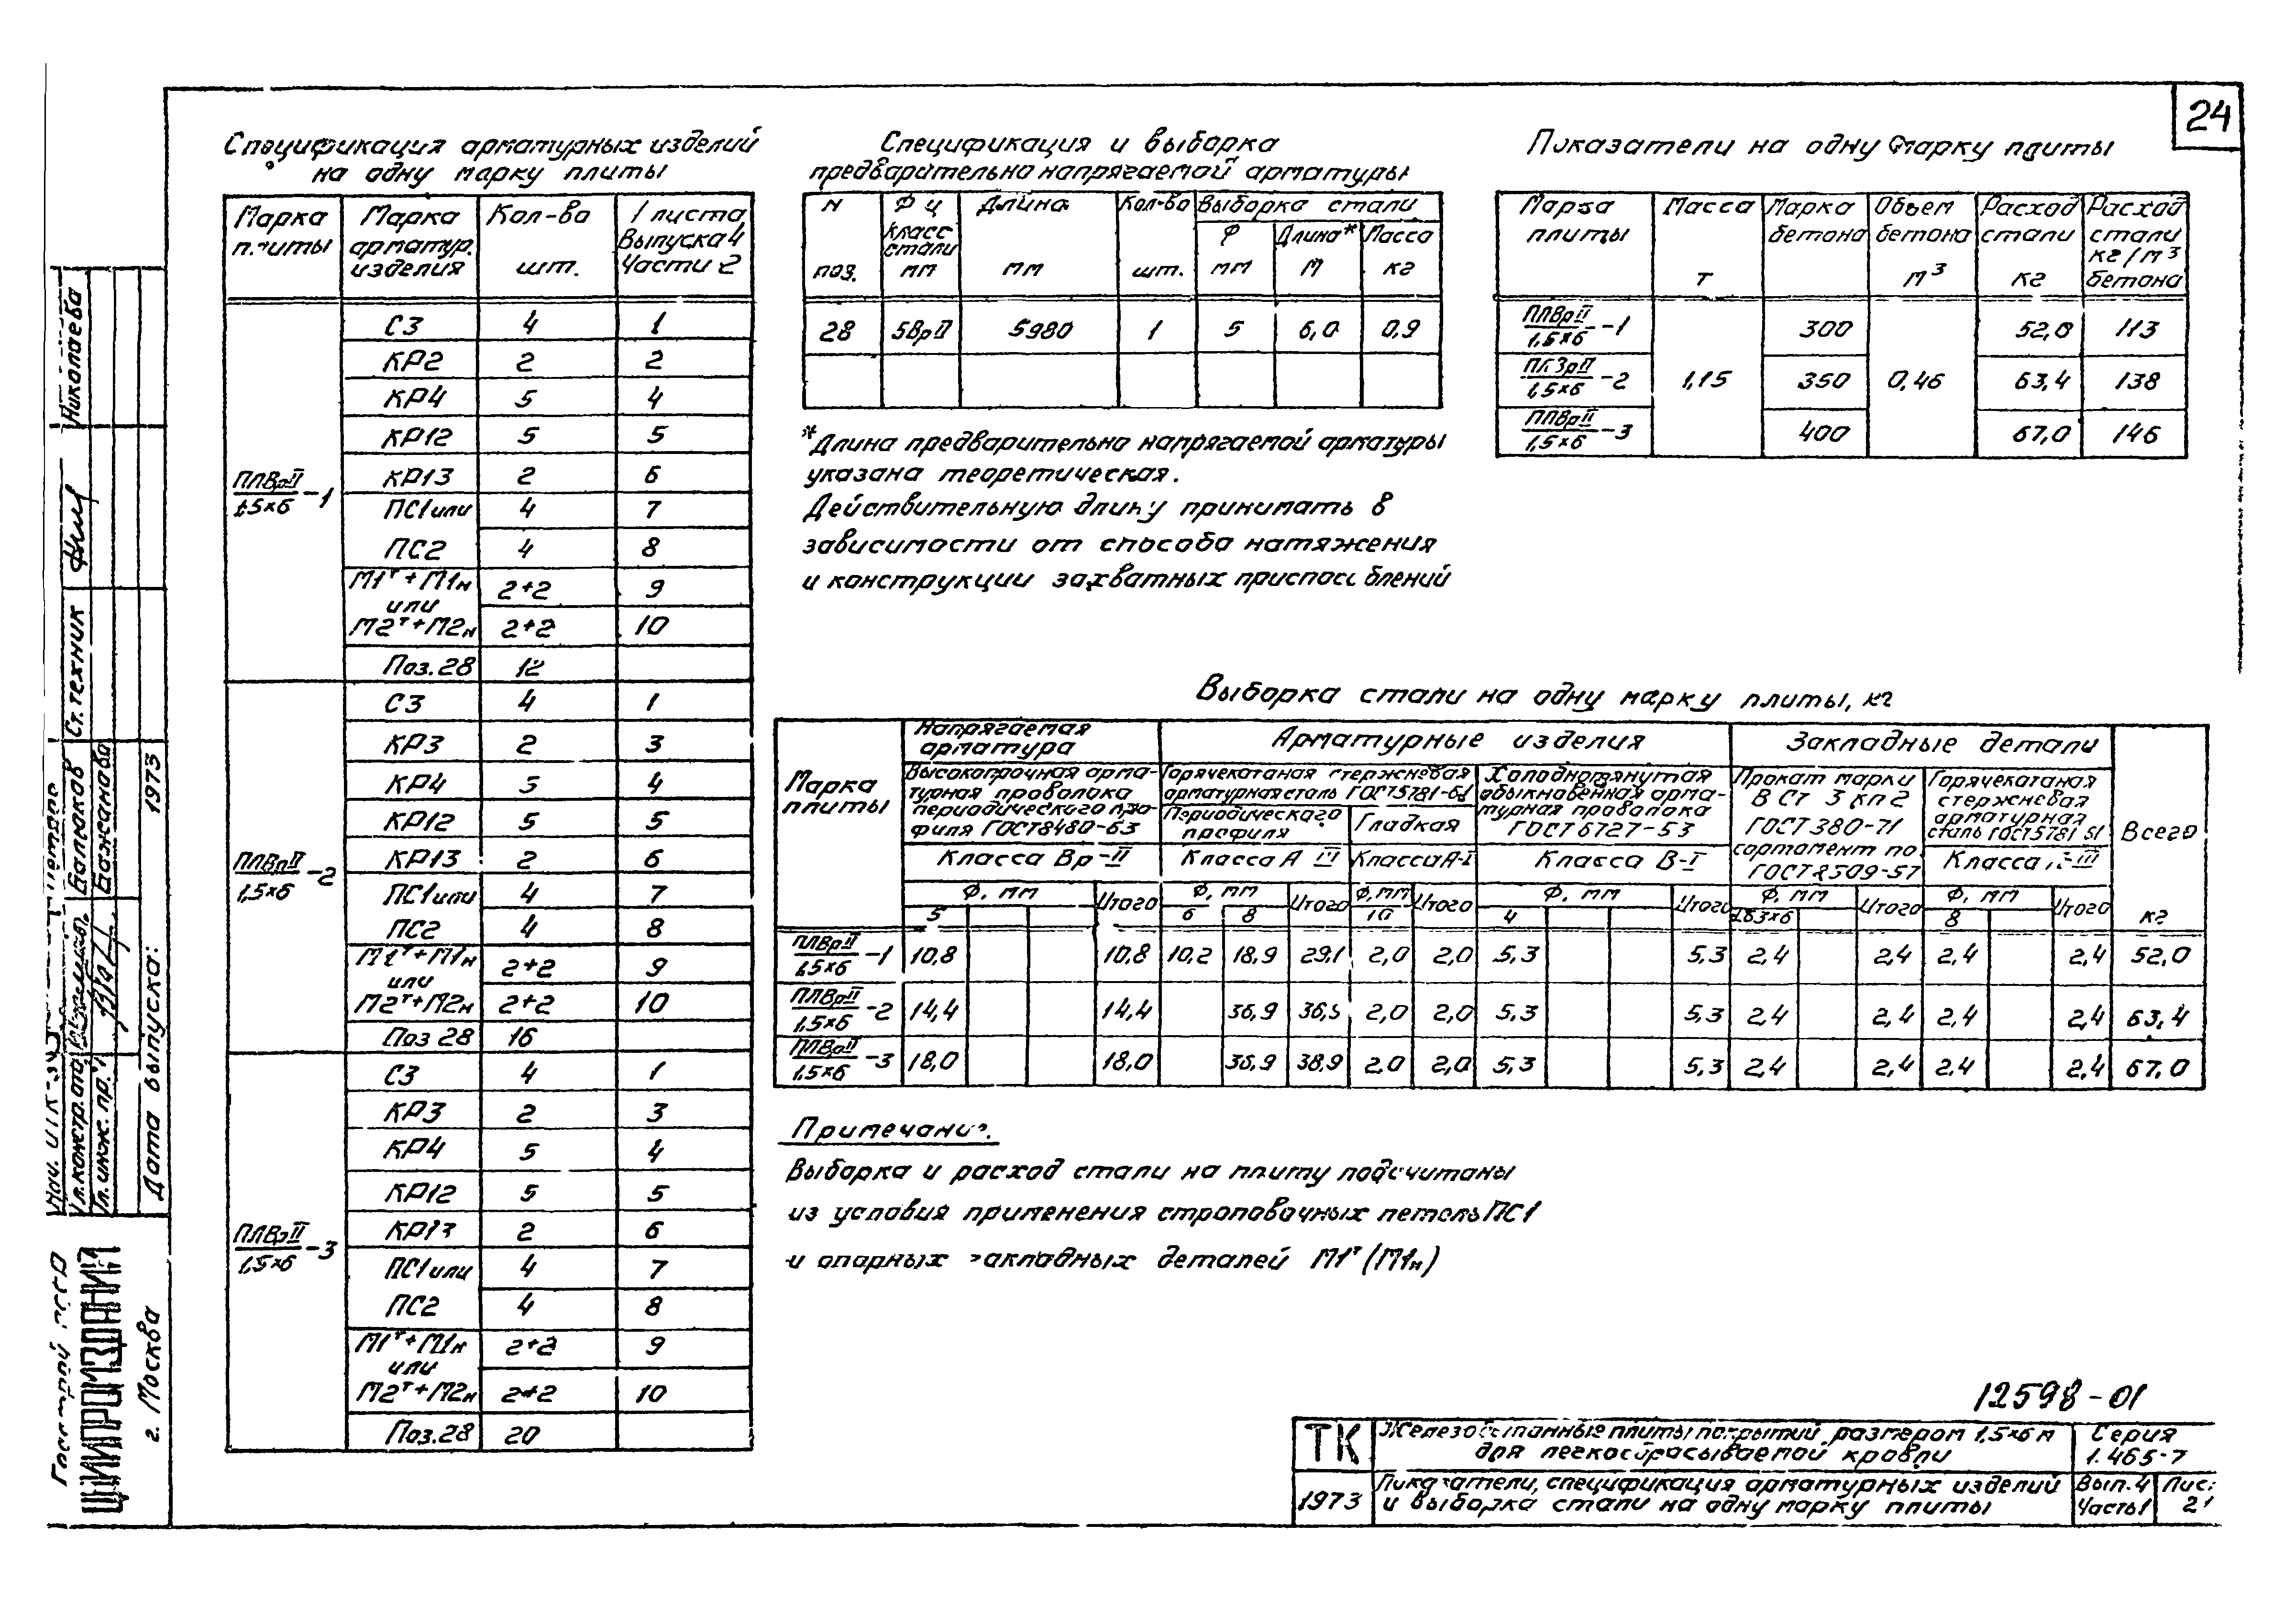 24
Спецификация арматурных изделий
на одну марку плиты
Марка плиты | Марка арматур. изделия | Кол-во шт. | № листа Выпуска 4 Части 2
ПЛВрII/1,5×6 -1
С3 4 1
КР2 2 2
КР4 5 4
КР12 5 5
КР13 2 6
ПС1 или 4 7
ПС2 4 8
М1т+М1н 2+2 9
или
М2т+М2н 2+2 10
Поз.28 12
ПЛВрII/1,5×6 -2
С3 4 1
КР3 2 3
КР4 5 4
КР12 5 5
КР13 2 6
ПС1 или 4 7
ПС2 4 8
М1т+М1н 2+2 9
или
М2т+М2н 2+2 10
Поз 28 16
ПЛВрII/1,5×6 -3
С3 4 1
КР3 2 3
КР4 5 4
КР12 5 5
КР13 2 6
ПС1 или 4 7
ПС2 4 8
М1т+М1н 2+2 9
или
М2т+М2н 2+2 10
Поз.28 20
Спецификация и выборка
предварительно напрягаемой арматуры
N поз. | Ф и класс стали мм | Длина мм | Кол-во шт. | Выборка стали
Ф мм | Длина* м | Масса кг
28 5ВрII 5980 1 5 6,0 0,9
*Длина предварительно напрягаемой арматуры
указана теоретическая.
Действительную длину принимать в
зависимости от способа натяжения
и конструкции захватных приспособлений
Показатели на одну марку плиты
Марка плиты | Масса т | Марка бетона | Объем бетона м³ | Расход стали кг | Расход стали кг/м³ бетона
ПЛВрII/1,5×6 -1 300 52,0 113
ПЛВрII/1,5×6 -2 1,15 350 0,46 63,4 138
ПЛВрII/1,5×6 -3 400 67,0 146
Выборка стали на одну марку плиты, кг
Марка плиты | Напрягаемая арматура | Арматурные изделия | Закладные детали | Всего кг
Высокопрочная арматурная проволока периодического профиля ГОСТ 8480-63 | Горячекатаная стержневая арматурная сталь ГОСТ 5781-61 | Холоднотянутая обыкновенная арматурная проволока ГОСТ 6727-53 | Прокат марки В Ст 3 кп 2 ГОСТ 380-71 сортамент по ГОСТ 8509-57 | Горячекатаная стержневая арматурная сталь ГОСТ 5781-61
Периодического профиля | Гладкая
Класса Вр-II | Класса А III | Класса А-I | Класса В-I | Класса А-III
Ф, мм | Итого | Ф, мм | Итого | Ф, мм | Итого | Ф, мм | Итого | Ф, мм | Итого | Ф, мм | Итого
5 | 6 | 8 | 10 | 4 | 8
ПЛВрII/1,5×6 -1 10,8 10,8 10,2 18,9 29,1 2,0 2,0 5,3 5,3 2,4 2,4 2,4 2,4 52,0
ПЛВрII/1,5×6 -2 14,4 14,4 36,9 2,0 2,0 5,3 5,3 2,4 2,4 2,4 2,4 63,4
ПЛВрII/1,5×6 -3 18,0 18,0 2,0 2,0 5,3 5,3 2,4 2,4 2,4 2,4 67,0
Примечание.
Выборка и расход стали на плиту подсчитаны
из условия применения строповочных петель ПС1
и опорных закладных деталей М1т (М1н)
12598-01
ТК
1973
Железобетонные плиты покрытий размером 1,5×6 м
для легкосбрасываемой кровли
Показатели, спецификация арматурных изделий
и выборка стали на одну марку плиты
Серия
1.465-7
Вып. 4
Часть 1
Лист
Госстрой СССР
ЦНИИПРОМЗДАНИЙ
г. Москва
Гл. констр. отд.
Гл. инж. пр.
Дата выпуска: 1973
Балаков
Бажанова
Ст. техник
Николаева